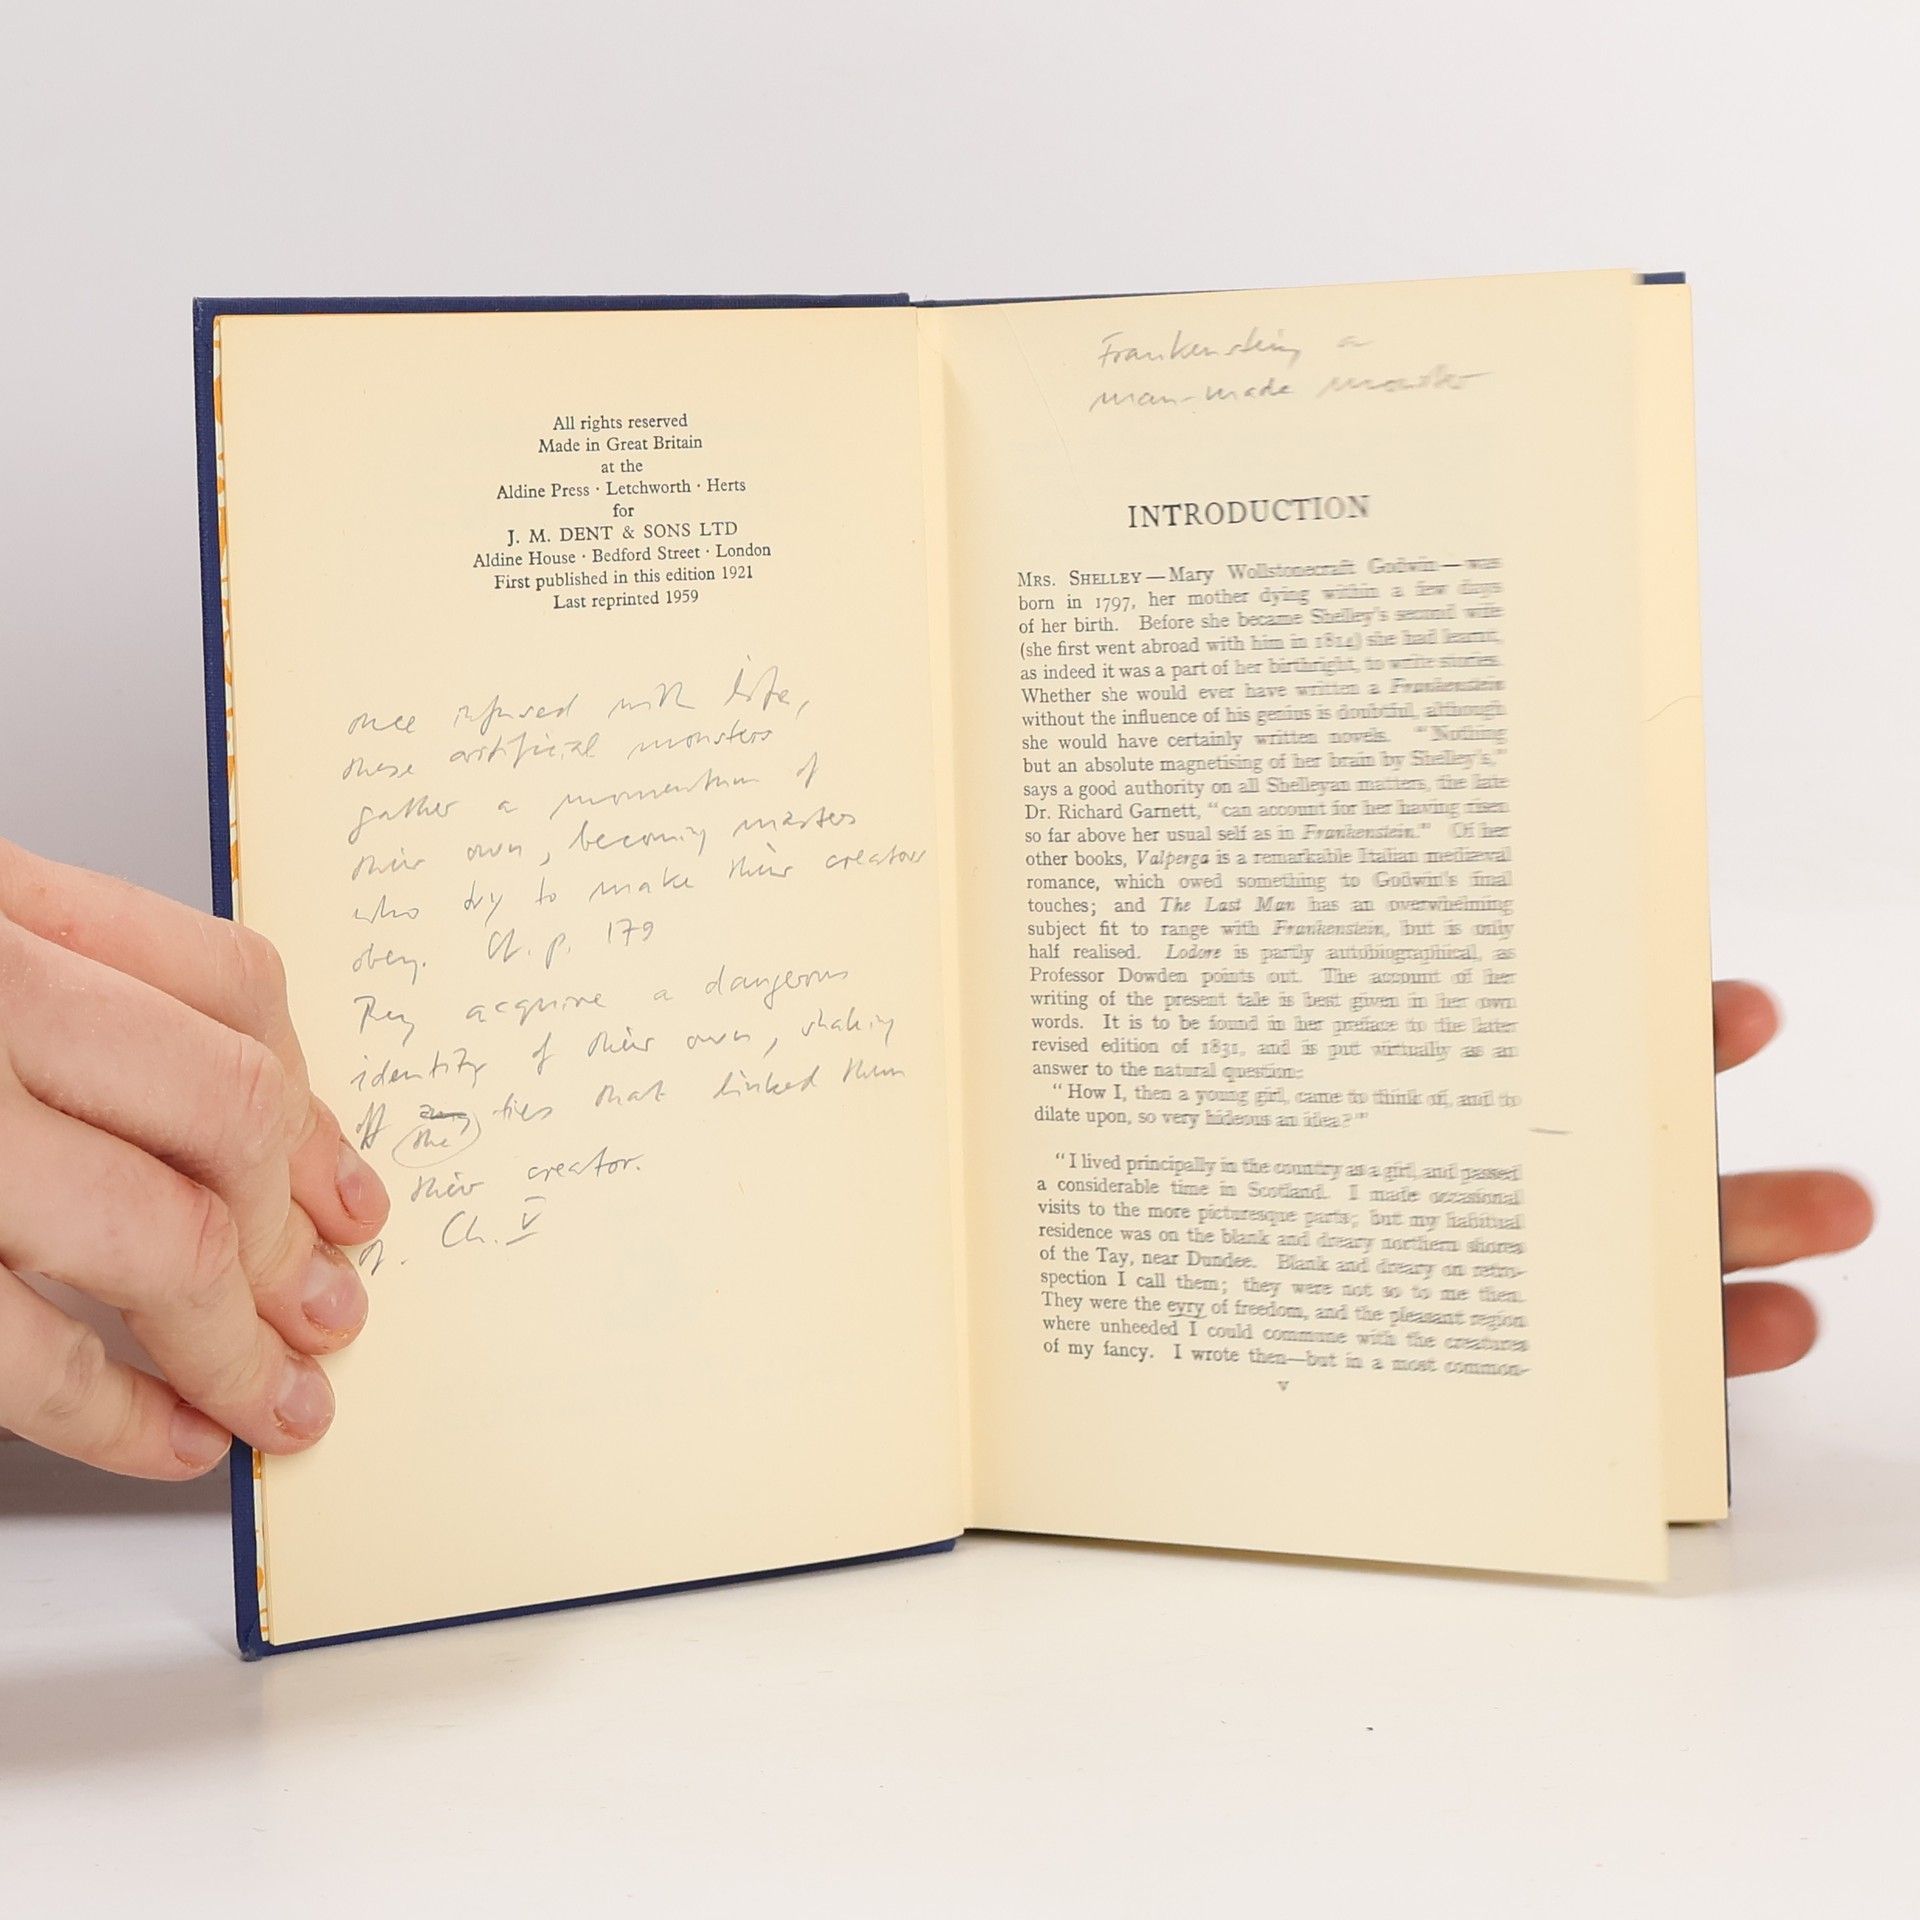 All rights reserved
Made in Great Britain
at the
Aldine Press · Letchworth · Herts
for
J. M. DENT & SONS LTD
Aldine House · Bedford Street · London
First published in this edition 1921
Last reprinted 1959
once infused with life,
these artificial monsters
gather a momentum of
their own, becoming masters
who try to make their creators
obey. Cf. p. 179
They acquire a dangerous
identity of their own, shaking
off the ties that linked them
their creator.
cf. Ch. V
Frankenstein, a
man-made monster
INTRODUCTION
MRS. SHELLEY—Mary Wollstonecraft Godwin—was
born in 1797, her mother dying within a few days
of her birth. Before she became Shelley's second wife
(she first went abroad with him in 1814) she had learnt,
as indeed it was a part of her birthright, to write stories.
Whether she would ever have written a Frankenstein
without the influence of his genius is doubtful, although
she would have certainly written novels. "Nothing
but an absolute magnetising of her brain by Shelley's,"
says a good authority on all Shelleyan matters, the late
Dr. Richard Garnett, "can account for her having risen
so far above her usual self as in Frankenstein." Of her
other books, Valperga is a remarkable Italian mediæval
romance, which owed something to Godwin's final
touches; and The Last Man has an overwhelming
subject fit to range with Frankenstein, but is only
half realised. Lodore is partly autobiographical, as
Professor Dowden points out. The account of her
writing of the present tale is best given in her own
words. It is to be found in her preface to the later
revised edition of 1831, and is put virtually as an
answer to the natural question:
"How I, then a young girl, came to think of, and to
dilate upon, so very hideous an idea?"
"I lived principally in the country as a girl, and passed
a considerable time in Scotland. I made occasional
visits to the more picturesque parts; but my habitual
residence was on the blank and dreary northern shores
of the Tay, near Dundee. Blank and dreary on retro-
spection I call them; they were not so to me then.
They were the eyry of freedom, and the pleasant region
where unheeded I could commune with the creatures
of my fancy. I wrote then—but in a most common-
v